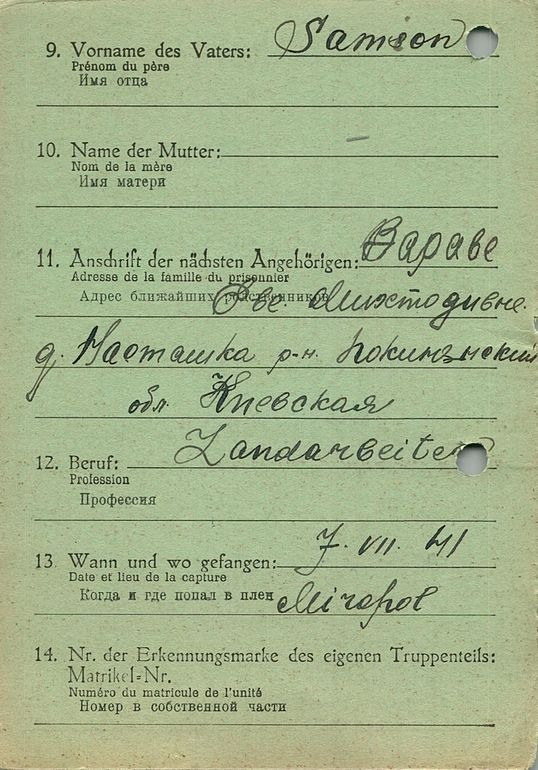 9. Vorname des Vaters: Samson
Prénom du père
Имя отца
10. Name der Mutter: —
Nom de la mère
Имя матери
11. Anschrift der nächsten Angehörigen: Вараве
Adresse de la famille du prisonnier
Адрес ближайших родственников
д. Насташка р-н.
обл Киевская
12. Beruf: Landarbeiter
Profession
Профессия
13. Wann und wo gefangen: 7. VII. 41
Date et lieu de la capture
Когда и где попал в плен Miropol
14. Nr. der Erkennungsmarke des eigenen Truppenteils:
Matrikel-Nr.
Numéro du matricule de l'unité
Номер в собственной части